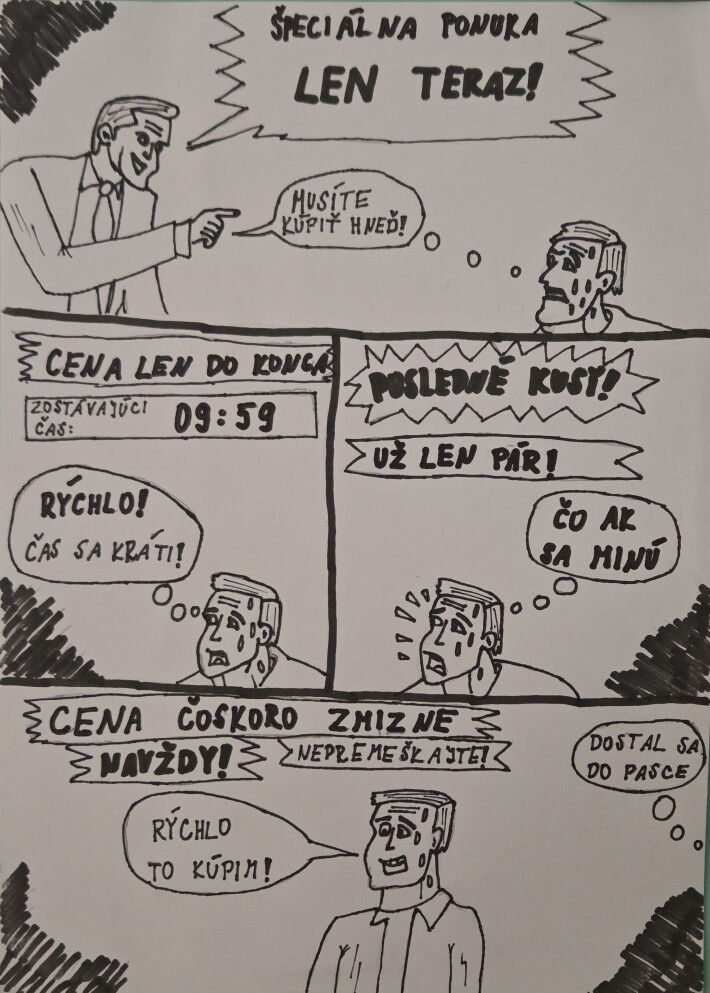 ŠPECIÁLNA PONUKA
LEN TERAZ!
MUSÍTE
KÚPIŤ HNEĎ!
CENA LEN DO KONCA
ZOSTÁVAJÚCI
ČAS:
09:59
RÝCHLO!
ČAS SA KRÁTI!
POSLEDNÉ KUSY!
UŽ LEN PÁR!
ČO AK
SA MINÚ
CENA ČOSKORO ZMIZNE
NAVŽDY!
NEPREMEŠKAJTE!
DOSTAL SA
DO PASCE
RÝCHLO
TO KÚPIM!